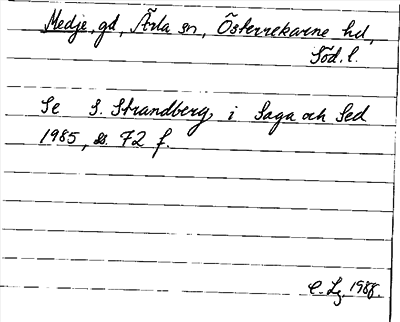 Medje, gd, Ärla sn, Österrekarne hd,
Söd. l.
Se S. Strandberg, i Saga och Sed
1985, ss. 72 f.
C. Lg. 1988.